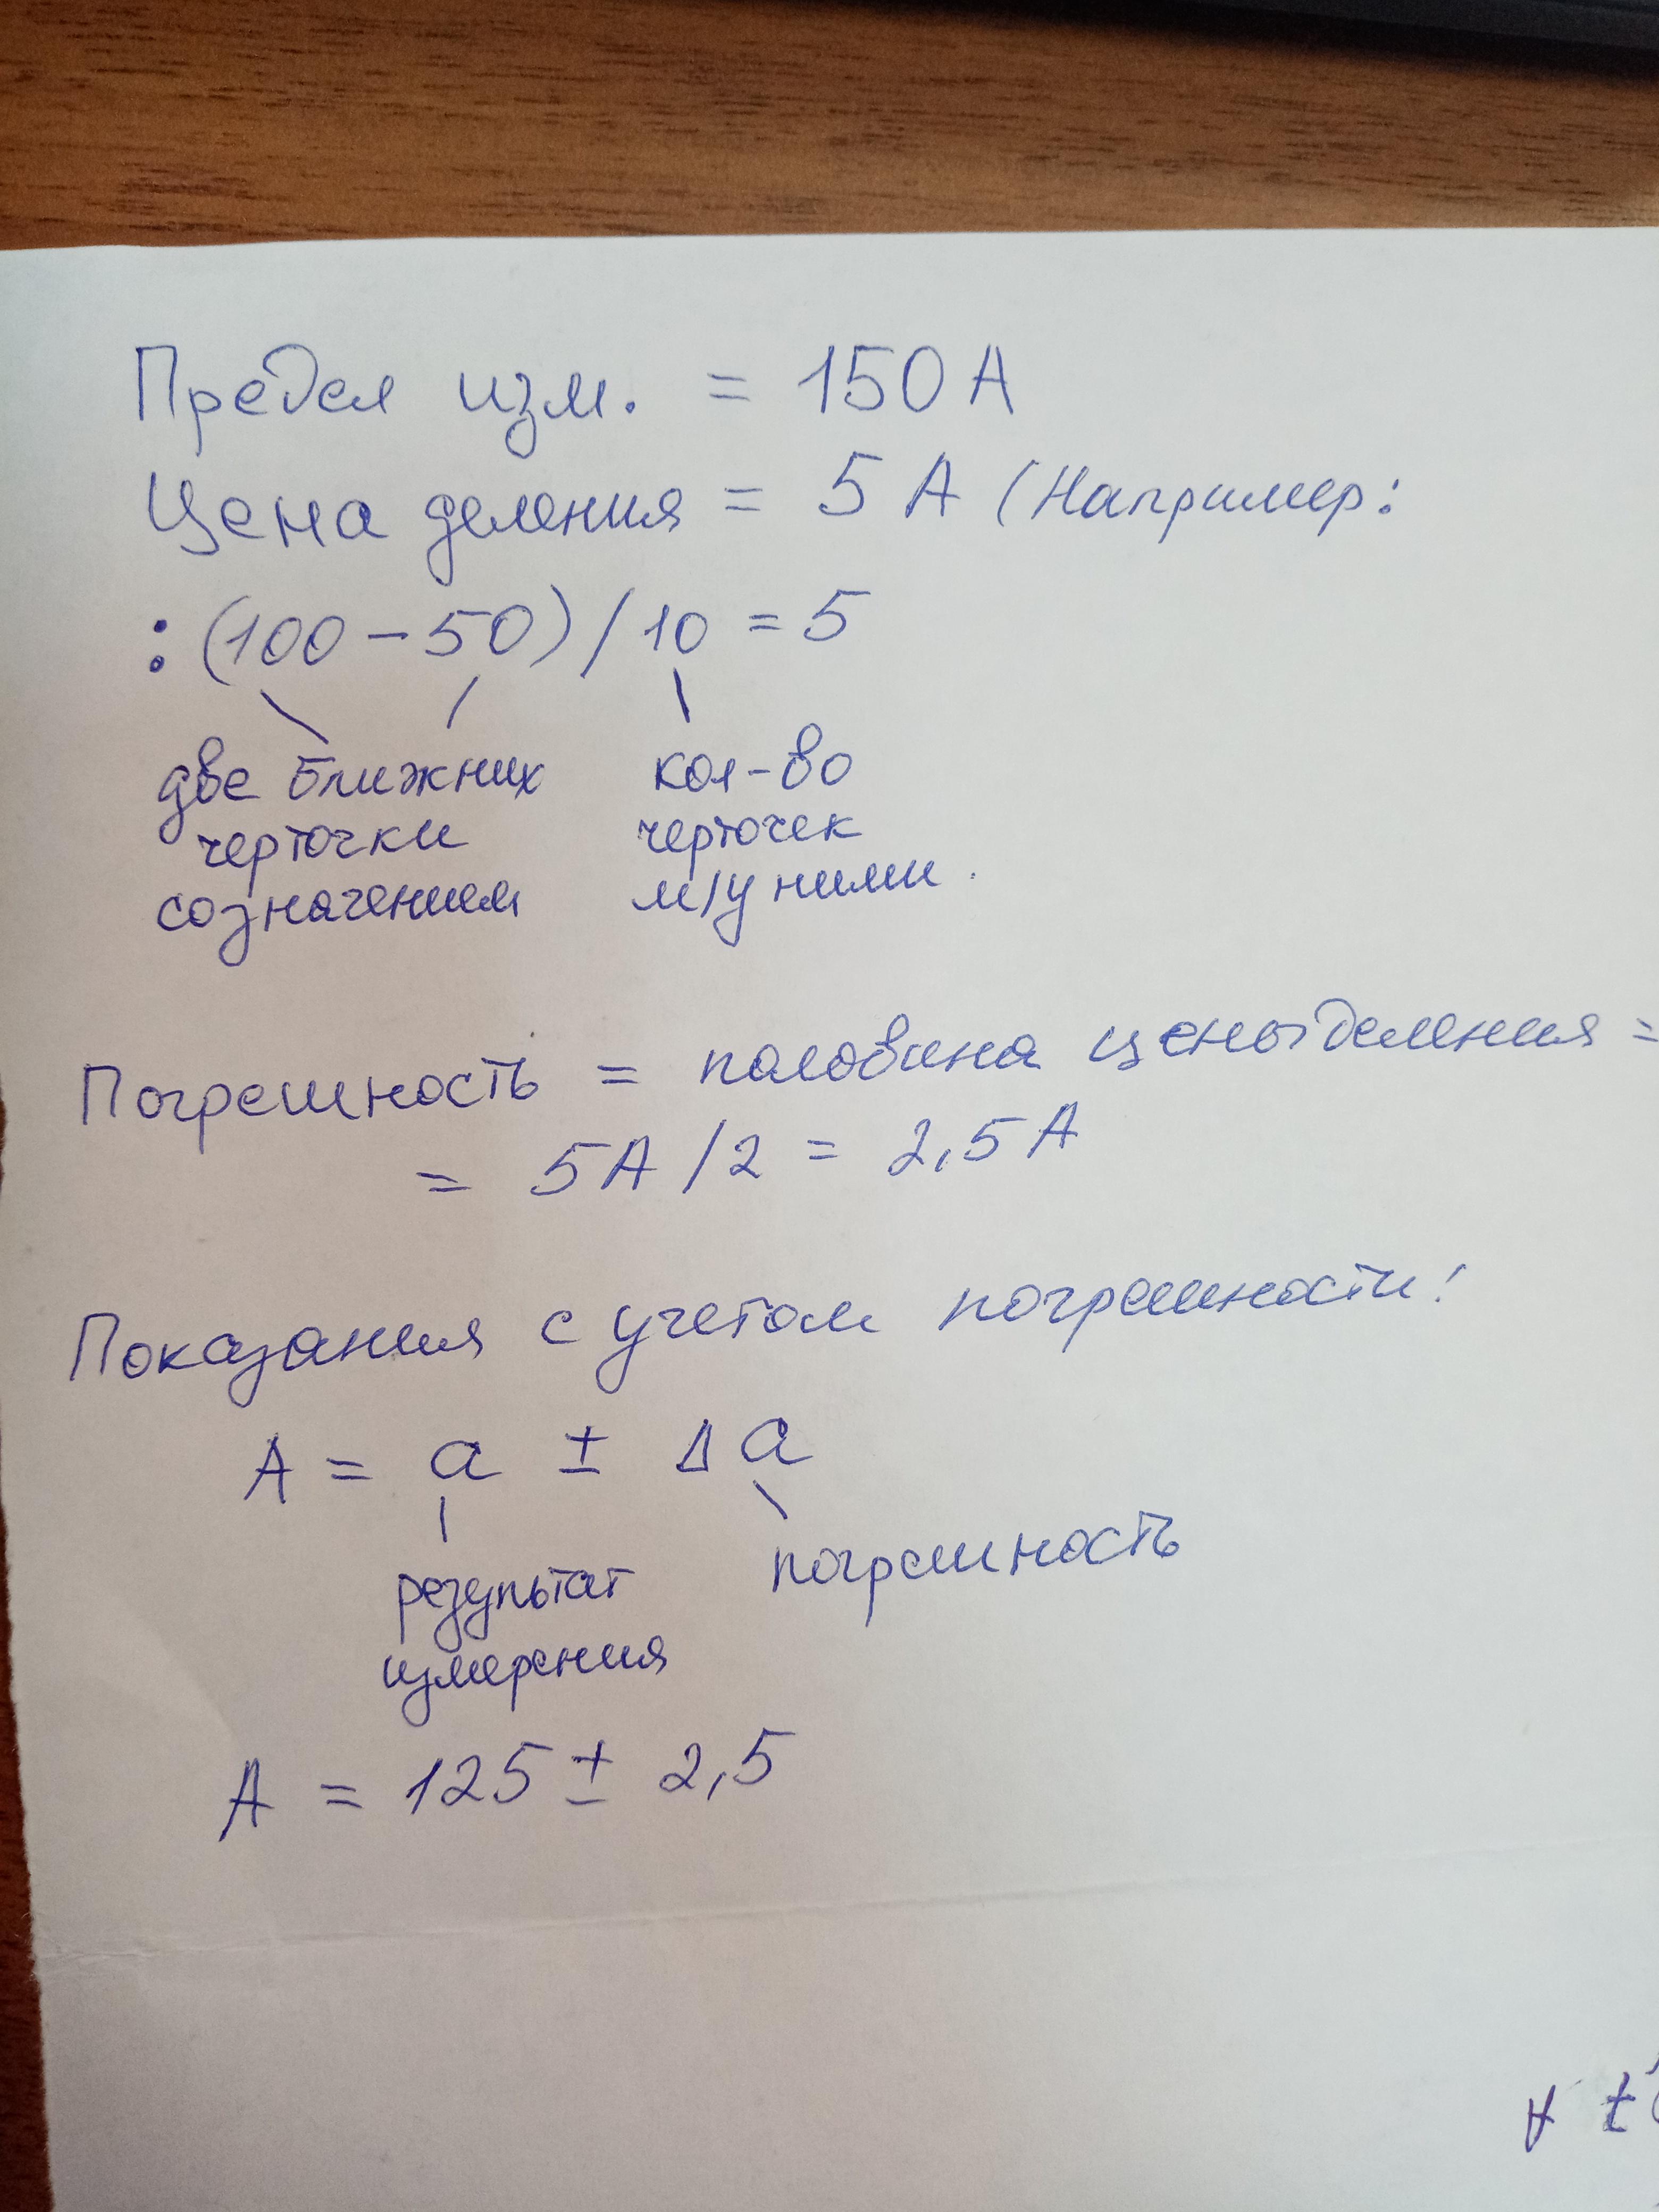 Предел изм. = 150 А
Цена деления = 5 А (Например:
: (100 - 50) / 10 = 5
две ближних кол-во
черточки черточек
со значением м/у ними.
Погрешность = половина цены деления =
= 5А / 2 = 2,5 А
Показания с учетом погрешности:
А = а ± Δ а
результат погрешность
измерения
А = 125 ± 2,5